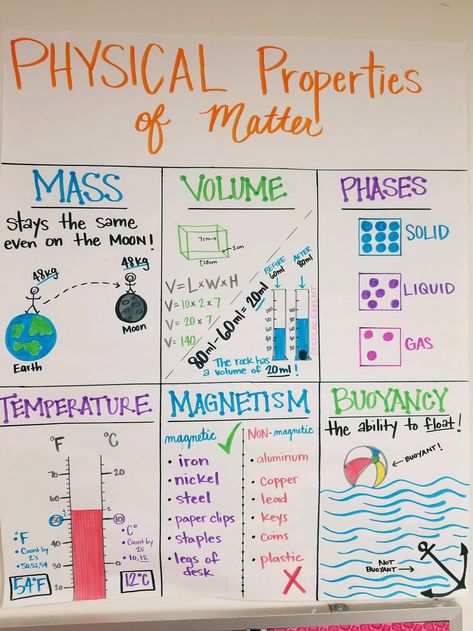 PHYSICAL Properties
of Matter
MASS
stays the same
even on the MOON!
48kg
48kg
Earth
Moon
VOLUME
7cm
2cm
10cm
V=L×W×H
V=10×2×7
V=20×7
V=140
BEFORE
60ml
AFTER
80ml
80ml-60ml=20ml
DISPLACEMENT
The rock has
a volume of 20ml!
PHASES
SOLID
LIQUID
GAS
TEMPERATURE
°F
°C
60
50
40
30
20
20
10
0
°F
• Count by
2's
• 50,52,54
54°F
• C°
• Count by
2's
• 10, 12
12°C
MAGNETISM
magnetic
• iron
• nickel
• steel
• paper clips
• staples
• legs of
desk
NON-magnetic
aluminum
• copper
• lead
• keys
• coins
• plastic
BUOYANCY
the ability to float!
BUOYANT!
NOT
BUOYANT